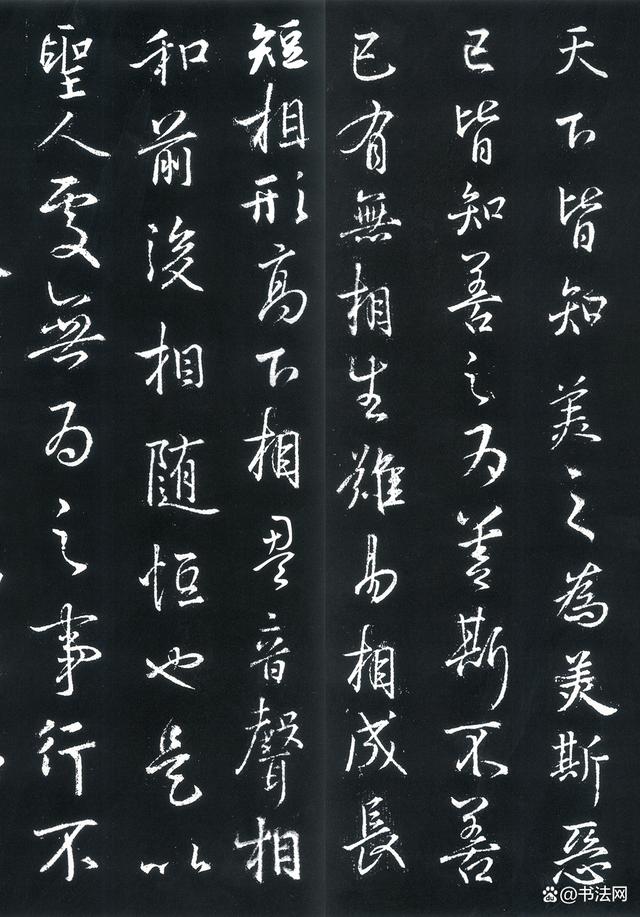 天下皆知美之為美斯惡
已皆知善之为善斯不善
已有無相生難易相成長
短相形高下相盈音聲相
和前後相随恒也是以
聖人处無为之事行不
@书法网